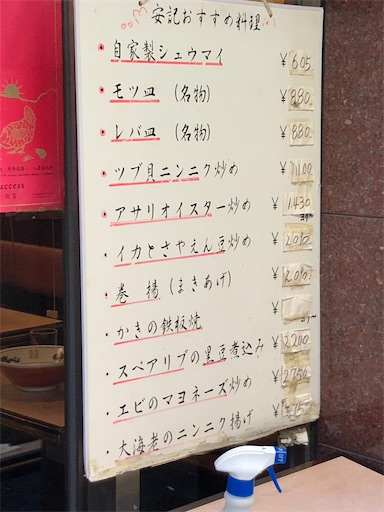 安記おすすめ料理
・自家製シュウマイ ¥605
・モツ皿 (名物) ¥880
・レバ皿 (名物) ¥880
・ツブ貝ニンニク炒め ¥1100
・アサリオイスター炒め ¥1430
・イカとさやえんどう炒め ¥2010
・巻揚(まきあげ) ¥
・かきの鉄板焼 ¥
・スペアリブの黒豆煮込み ¥2200
・エビのマヨネーズ炒め ¥2750
・大海老のニンニク揚げ ¥
uccess